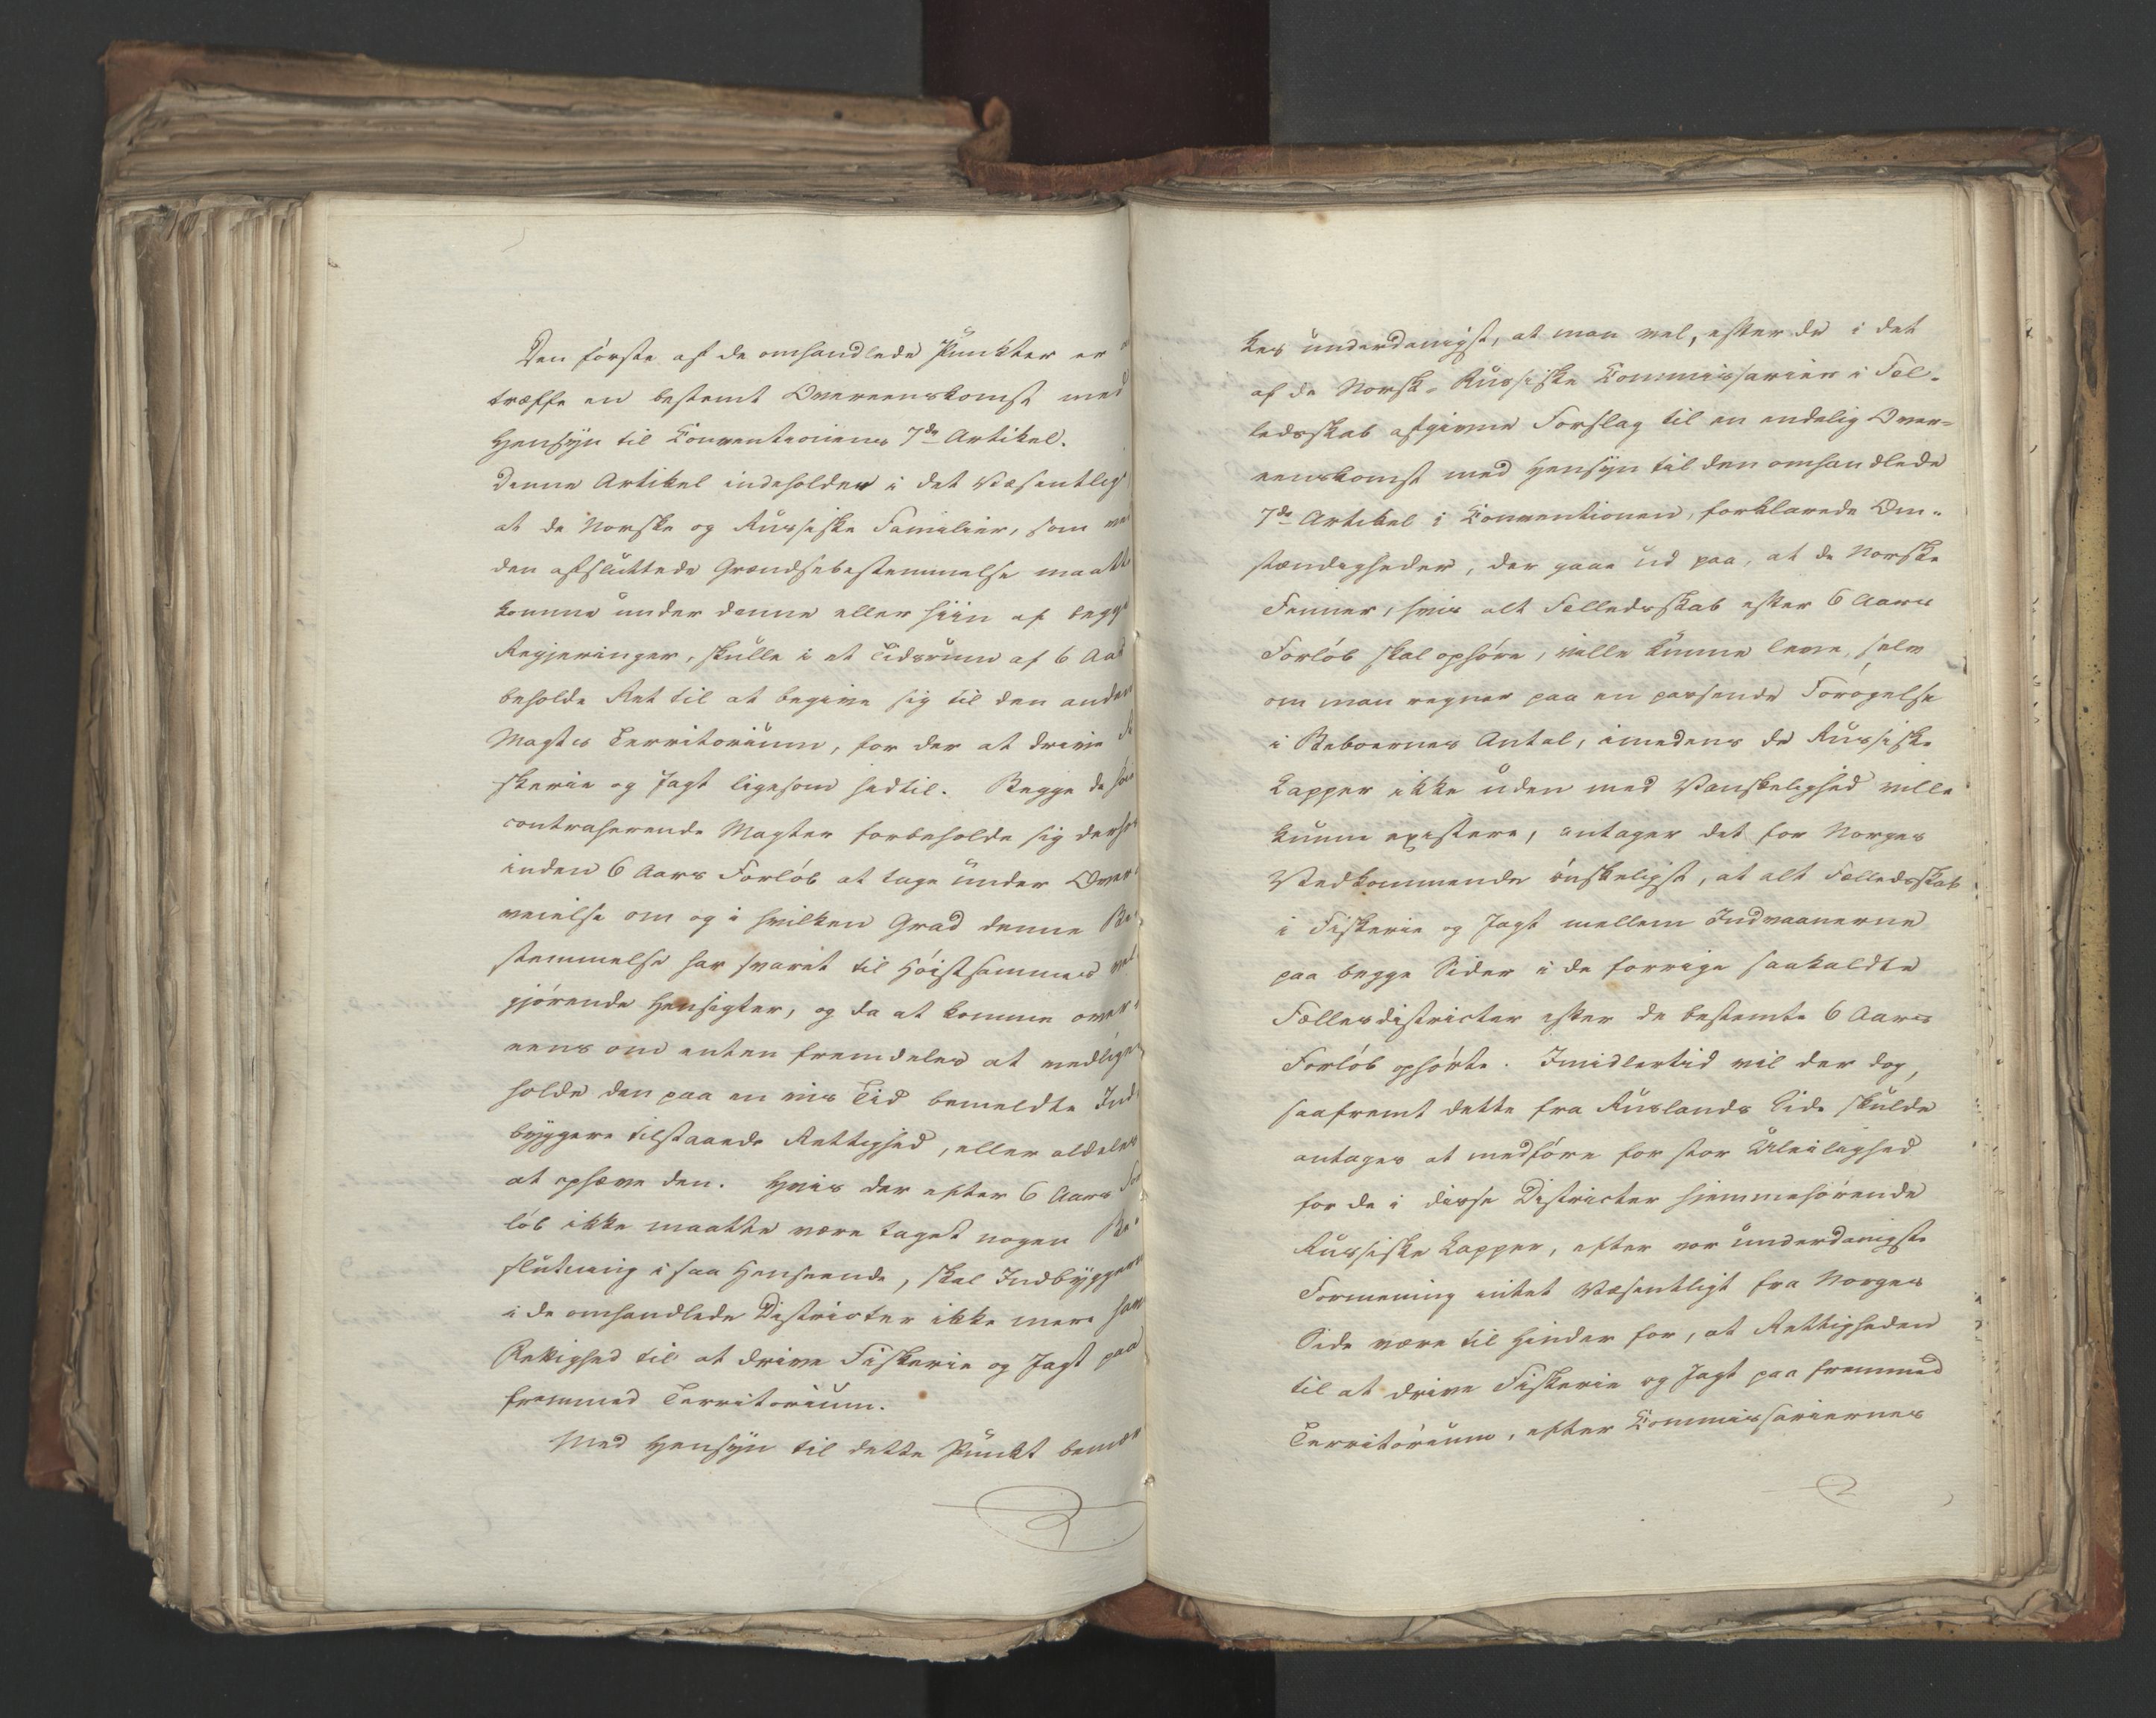 Den første af de omhandlede Punkter er
træffe en bestemt Overeenskomst med
Hensyn til Conventionens 7de Artikel.
Denne Artikel indeholder i det Væsentlig
at de Norske og Russiske Familier, som
den afsluttede Grændsebestemmelse maatte
komme under denne eller hiin af begge
Regjeringer, skulle i et Tidsrum af 6 Aar
beholde Ret til at begive sig til den anden
Magts Territorium, for der at drive Fi
skerie og Jagt ligesom hidtil. Begge de høie
contraherende Magter forbeholde sig derhos
inden 6 Aars Forløb at tage under Over
veielse om og i hvilken Grad denne Be
stemmelse har svaret til Høistsammes vel
gjørende Hensigter, og da at komme over
eens om enten fremdeles at vedlige
holde den paa en vis Tid bemeldte Ind
byggere tilstaaede Rettighed, eller aldeles
at ophæve den. Hvis der efter 6 Aars For
løb ikke maatte være taget nogen Be
slutning i saa Henseende, skal Indbyggerne
i de omhandlede Districter ikke mere have
Rettighed til at drive Fiskerie og Jagt paa
fremmed Territorium.
Med Hensyn til dette Punkt bemær
kes underdanigst, at man vel, efter de i det
af de Norsk-Russiske Commissarier i Fel-
ledsskab afgivne Forslag til en endelig Over=
eenskomst med Hensyn til den omhandlede
7de Artikel i Conventionen, forklarede Om-
stændigheder, der gaae ud paa, at de Norske
Finner, hvis alt Felledsskab efter 6 Aars
Forløb skal ophøre, ville kunne leve, selv
om man regner paa en passende Forøgelse
i Beboernes Antal, imedens de Russiske
Lapper ikke uden med Vanskelighed ville
kunne existere, antager det for Norges
Vedkommende ønskeligst, at alt Fælledsskab
i Fiskerie og Jagt mellem Indvaanerne
paa begge Sider i de forrige saakaldte
Fællesdistricter efter de bestemte 6 Aars
Forløb ophørte. Imidlertid vil der dog,
saafremt dette fra Ruslands Side skulde
antages at medføre for stor Uleilighed
for de i disse Districter hjemmehørende
Russiske Lapper, efter vor underdanigste
Formening intet Væsentligt fra Norges
Side være til Hinder for, at Rettigheden
til at drive Fiskerie og Jagt paa fremmed
Territorium, efter Commissariernes